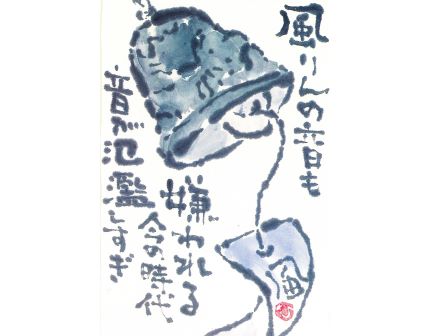 風りんの音も
嫌われる
今の時代
音が氾濫しすぎ
風